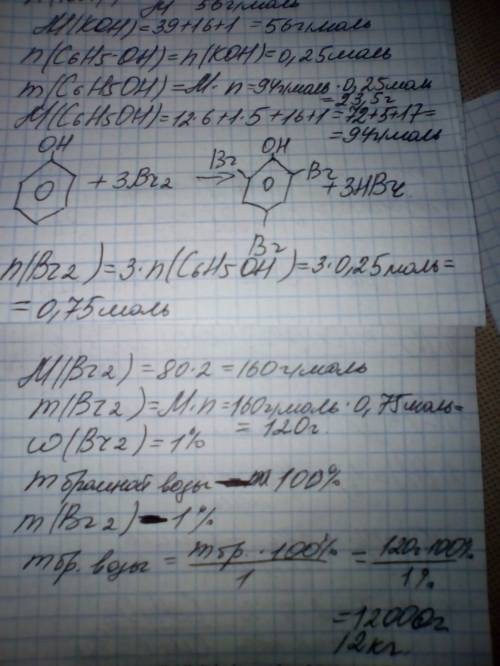 M 56г/моль
M(KOH)=39+16+1=56г/моль
n(C6H5-OH)=n(KOH)=0,25моль
m(C6H5OH)=M·n=94г/моль·0,25моль
=23,5г
M(C6H5OH)=12·6+1·5+16+1=72+5+17=
=94г/моль
OH
+3Br2 →
Br OH Br
Br
+3HBr
n(Br2)=3·n(C6H5OH)=3·0,25моль=
=0,75моль
M(Br2)=80·2=160г/моль
m(Br2)=M·n=160г/моль·0,75моль=
=120г
ω(Br2)=1%
m бромной воды - 100%
m(Br2) - 1%
m бр. воды = m бр.·100% / 1 = 120г·100% / 1%
=12000г
12кг